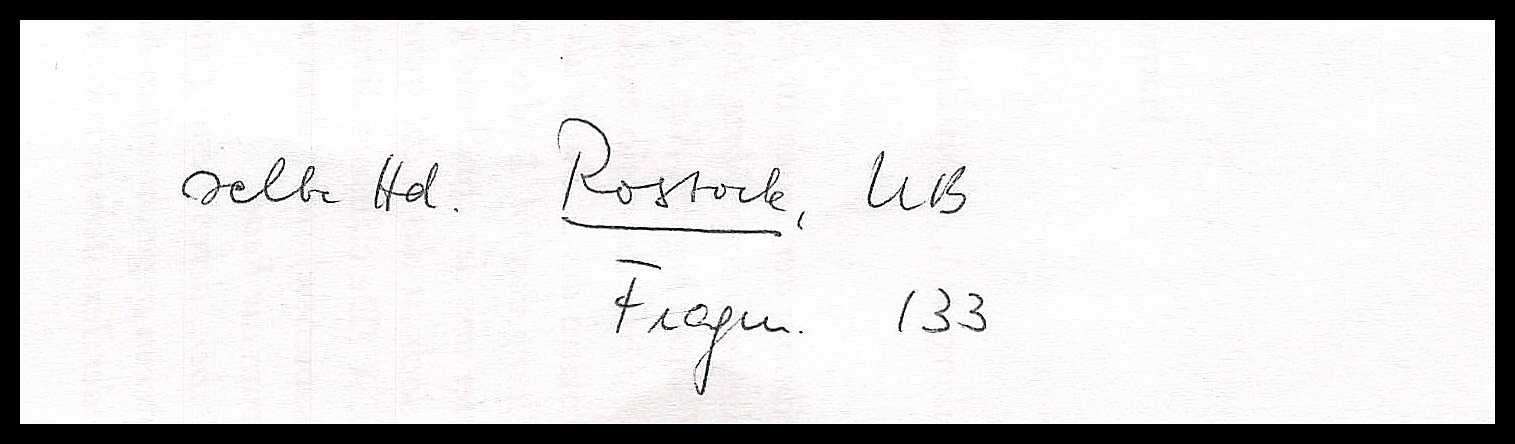 selbe Hd. Rostock, UB
Fragm. 133